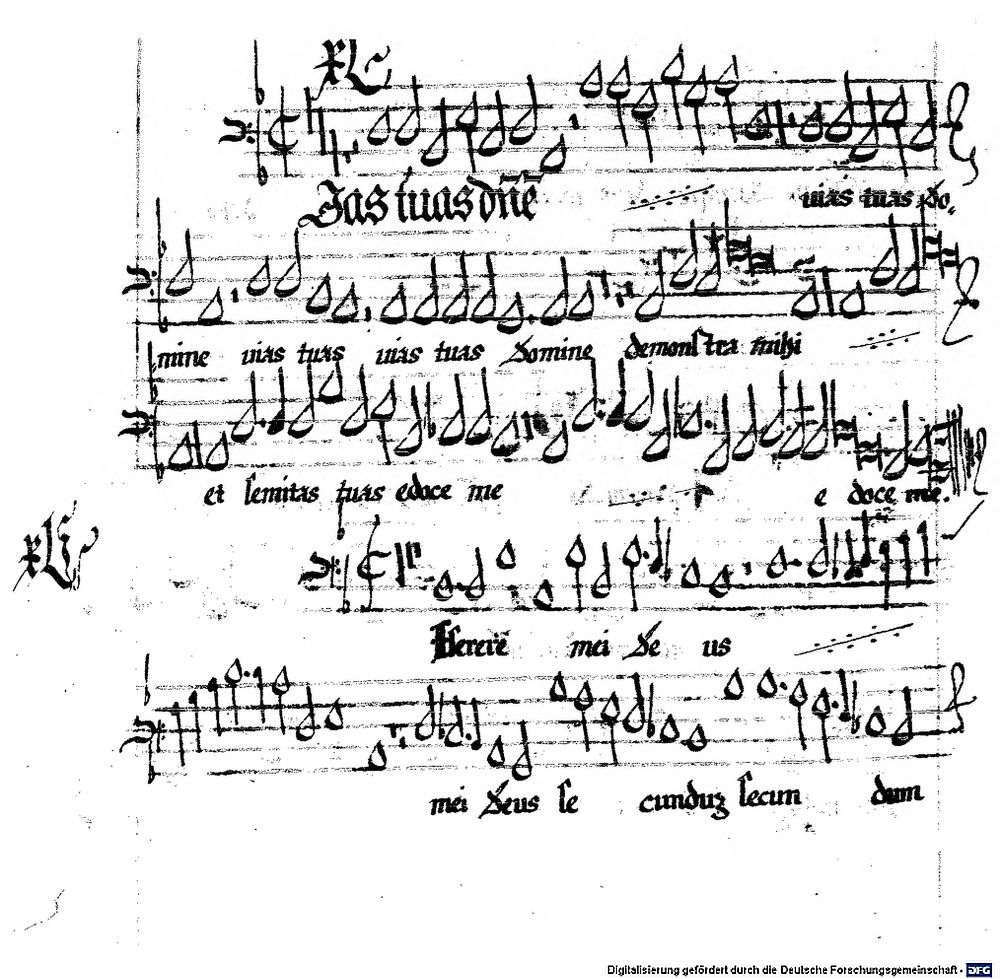 xl
Jas tuas dn̄e uias tuas do,
mine uias tuas uias tuas domine demonstra mihi
et semitas tuas edoce me e doce me.
mei De us
mei Deus se cunduz secun dum
Digitalisierung gefördert durch die Deutsche Forschungsgemeinschaft - DFG